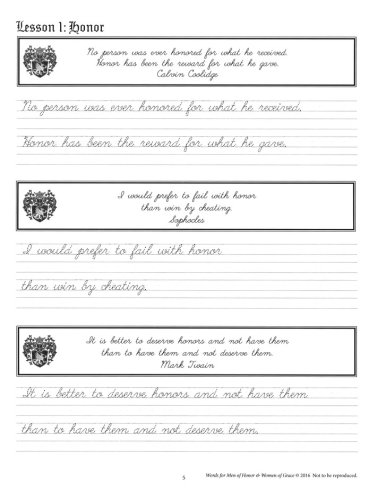 Lesson 1: Honor
No person was ever honored for what he received.
Honor has been the reward for what he gave.
Calvin Coolidge
No person was ever honored for what he received.
Honor has been the reward for what he gave.
I would prefer to fail with honor
than win by cheating.
Sophocles
I would prefer to fail with honor
than win by cheating.
It is better to deserve honors and not have them
than to have them and not deserve them.
Mark Twain
It is better to deserve honors and not have them
than to have them and not deserve them.
5
Words for Men of Honor & Women of Grace © 2016 Not to be reproduced.